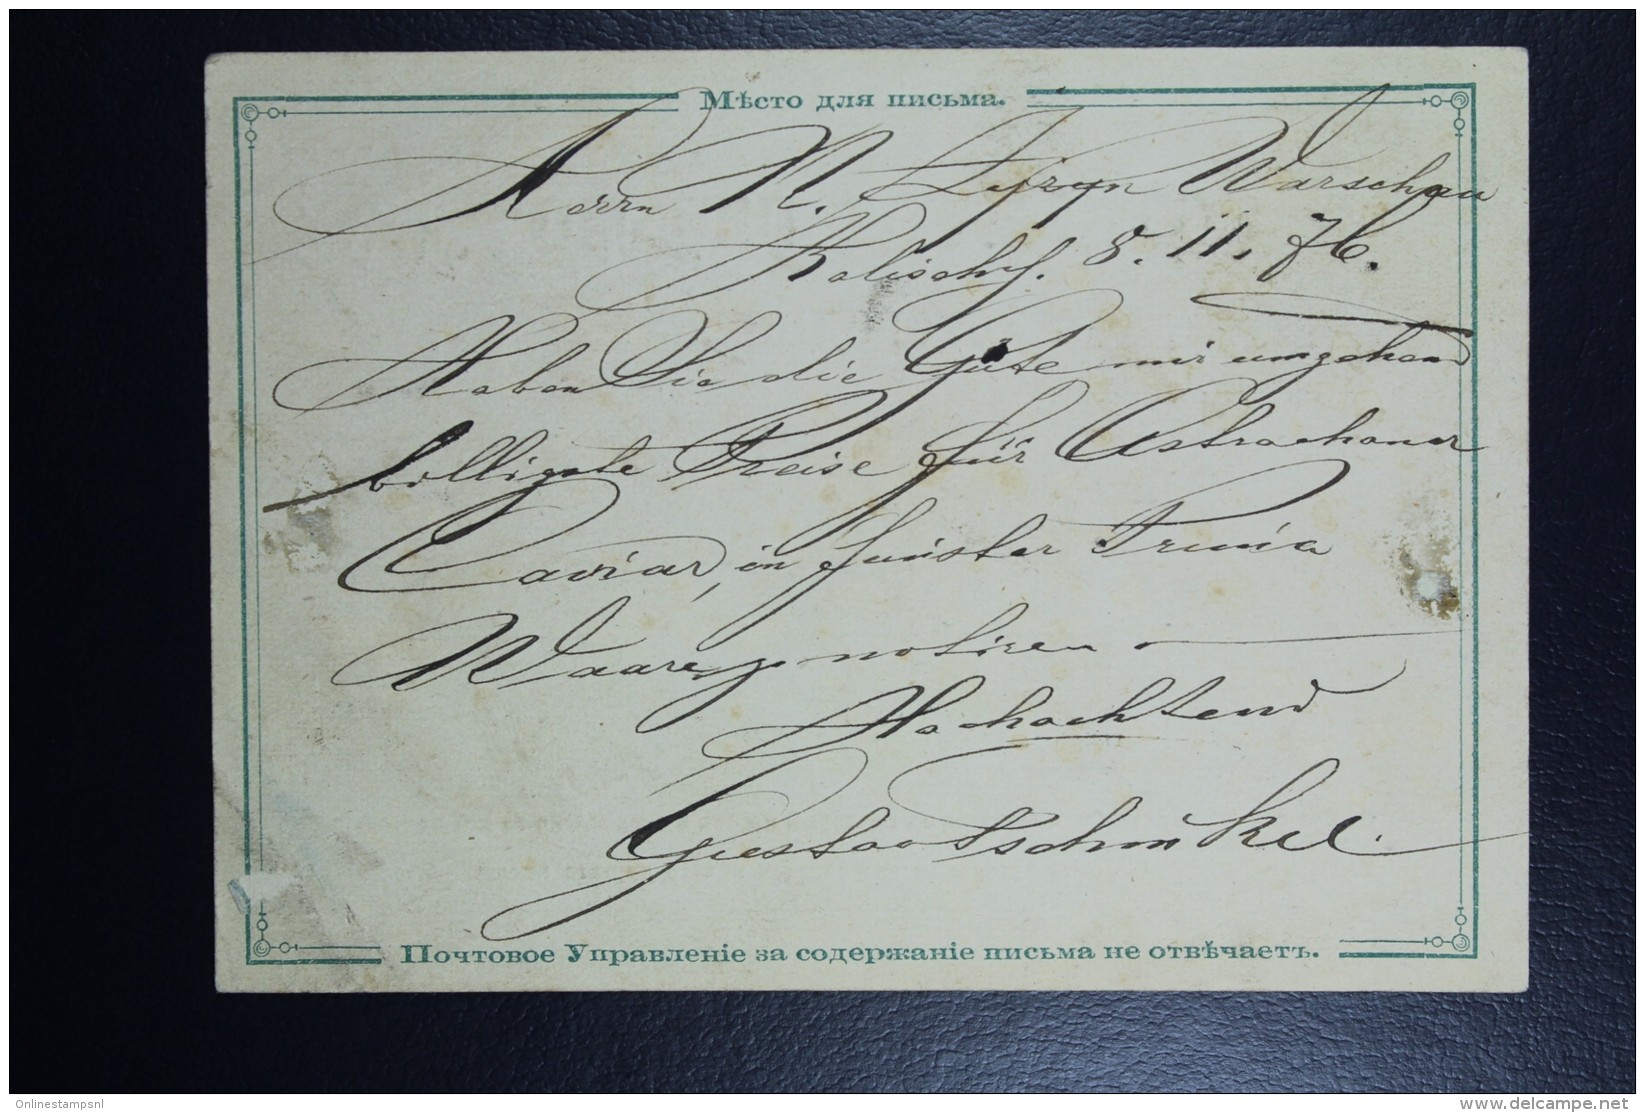 Мѣсто для письма.
Herrn N. Warschau
Kalisch 8. 11. 76.
Haben Sie die Güte mir umgehend
billigste Preise für Astrachaner
Caviar, in feinster Prima
Waare, notiren
Hochachtend
Gustav Tschinkel.
Почтовое Управленіе за содержаніе письма не отвѣчаетъ.
Onlinestampsnl
delcampe.net